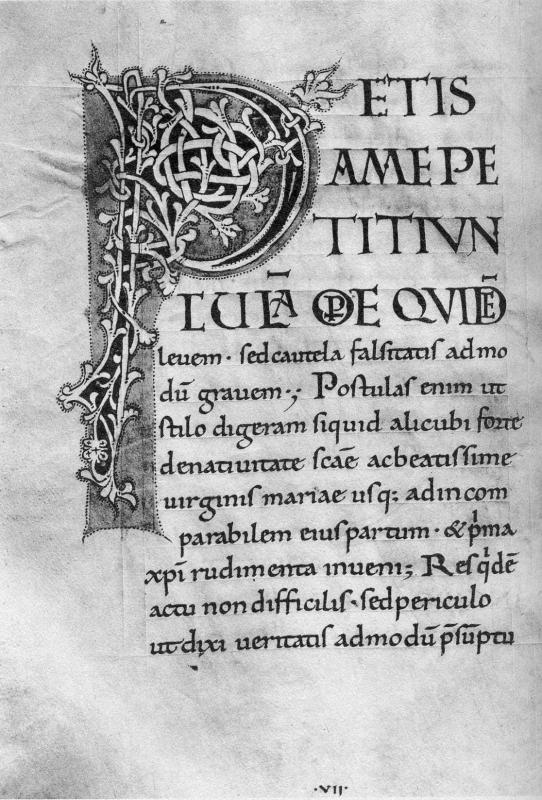 PETIS
AMEPE
TITIVN
CULĀ OPE QVIDĒ
levem · sed cautela falsitatis admo
dū gravem·; Postulas enim ut
stilo digeram siquid alicubi forte
denativitate scāe acbeatissime
virginis mariae usq; adincom
parabilem eius partum · & p̍ma
xpī rudimenta inveni; Res q̍dē
actu non difficilis · sed periculo
ut dixi veritatis admodū p̄sūptu
·VII·